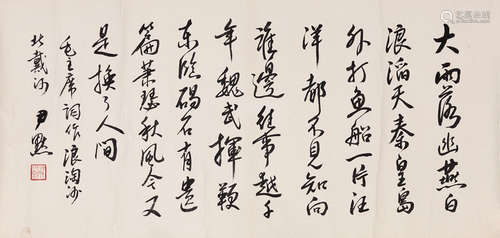 大雨落幽燕白
浪滔天秦皇岛
外打鱼船一片汪
洋都不见知向
谁邊往事越千
年魏武揮鞭
东临碣石有遗
篇萧瑟秋风今又
是换了人间
毛主席词作浪淘沙
北戴河 尹默